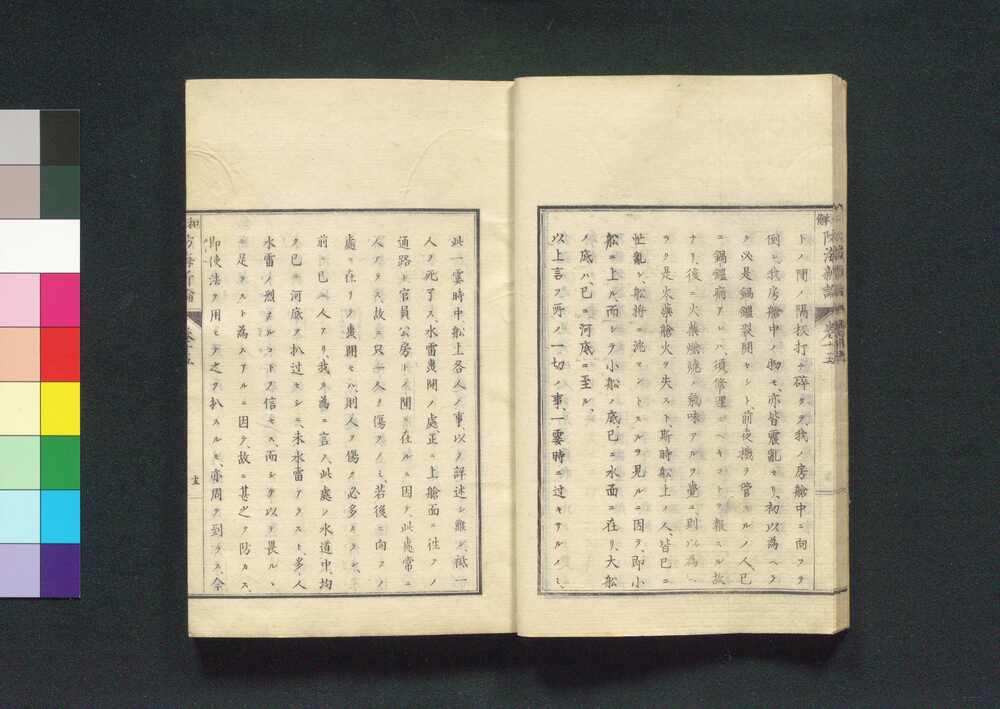 トノ間ノ隔板打チ碎ケテ、我ノ房艙中ニ向フテ
倒レ、我房艙中ノ物モ、亦皆震亂セリ、初以為ヘラ
ク必是鍋爐裂開セシト、前夜機ヲ管スルノ人、已
ニ鍋爐病アレハ、須修理スヘキコトヲ報スル故
ナリ、後ニ火藥燃燒ノ氣味アルヲ覺ヱ、則以為ヘ
ラク是火藥艙火ヲ失スト、斯時船上ノ人、皆已ニ
忙亂シ、船將ニ沈マントスルヲ見ルニ因テ、即小
船ニ上ル、而シテ小船ノ底已ニ水面ニ在リ、大船
ノ底ハ、已ニ河底ニ至ル、
以上言フ所ノ一切ノ事、一霎時ニ過キサルノミ、
此一霎時中船上各人ノ事、以テ詳述シ難シ、祗一
人ヲ死了ス、水雷轟開ノ處、正ニ上艙面ニ往クノ
通路ト官員公房トノ間ニ在ルニ因テ、此處常ニ
人ナクス、故ニ只一人ヲ傷クノミ、若後ニ向フノ
處ニ在リテ轟開セハ、則人ヲ傷ク必多カラン、
前ニ已ニ人アリ、我カ為ニ言ヘ、此處ノ水道中、均
ク已ニ河底ヲ扒过セシニ、未水雷アラスト、多人
水雷ノ烈タルコトヲ信セス、而シテ以テ畏ルヽ
ニ足ラスト為スアルニ因テ、故ニ甚之ヲ防カス、
即使法ヲ用ヒテ之ヲ扒スルモ、亦周ク到ラス、令